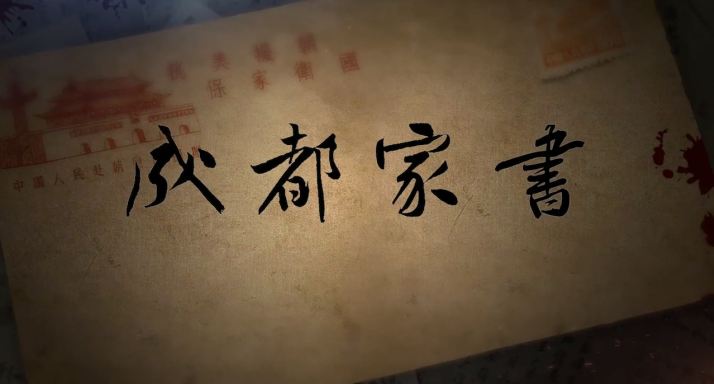 抗美援朝
保家衛國
中國人民赴
成都家書